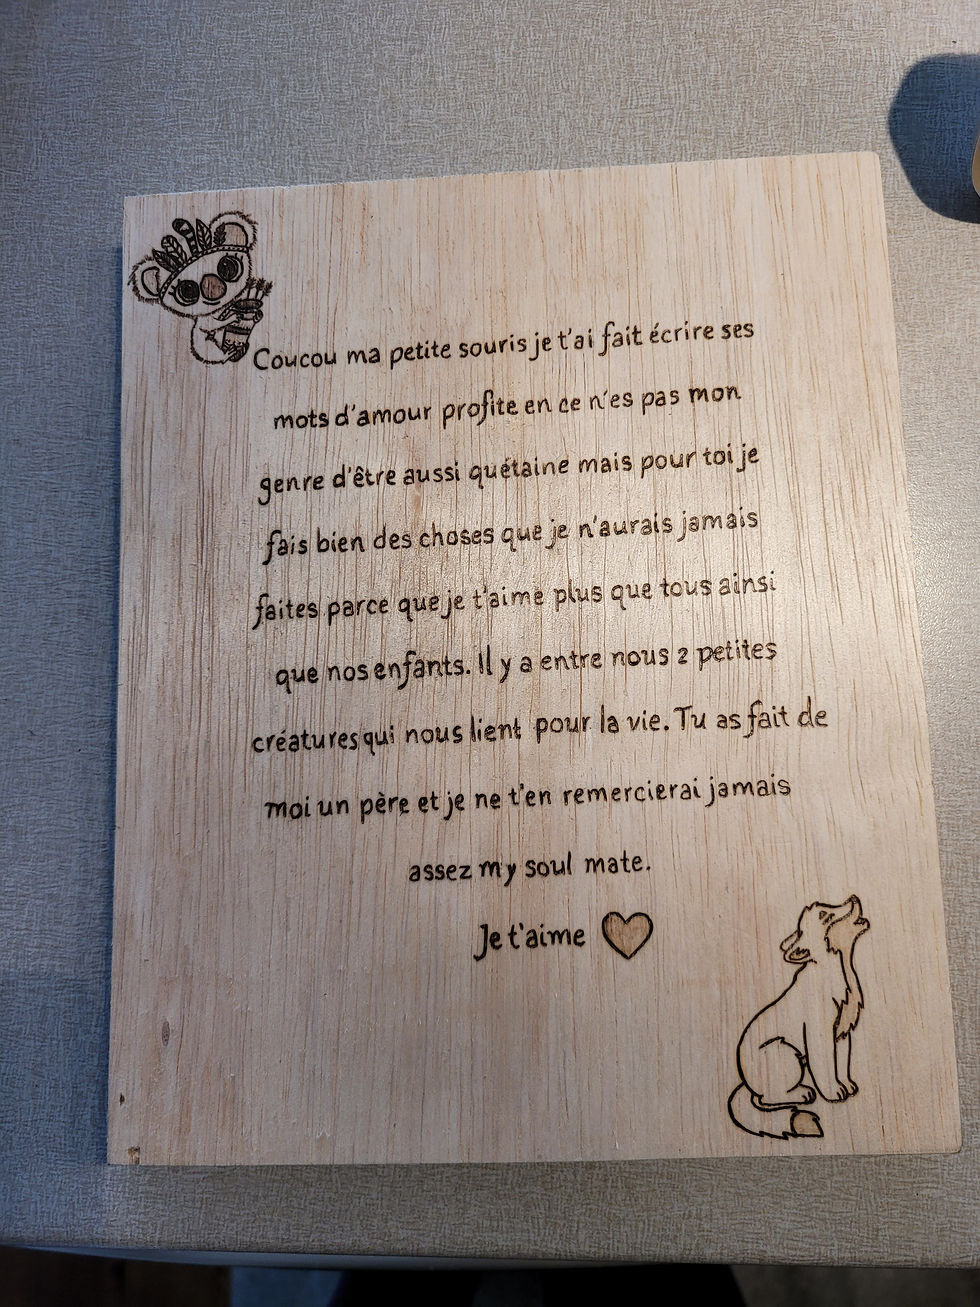 Coucou ma petite souris je t'ai fait écrire ses
mots d'amour profite en ce n'es pas mon
genre d'être aussi quétaine mais pour toi je
fais bien des choses que je n'aurais jamais
faites parce que je t'aime plus que tous ainsi
que nos enfants. Il y a entre nous 2 petites
créatures qui nous lient pour la vie. Tu as fait de
moi un père et je ne t'en remercierai jamais
assez my soul mate.
Je t'aime